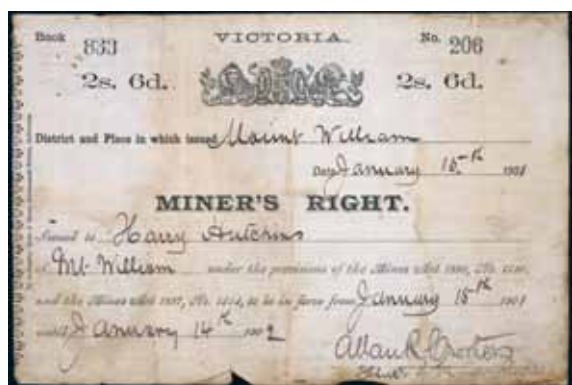 Book 833 VICTORIA. No. 206
2s. 6d. 2s. 6d.
District and Place in which issued Mount William
Date January 15th 1901
MINER'S RIGHT.
Issued to Harry Hutchins
of Mt William under the provisions of the Mines Act 1890, No.
and the Mines Act 1897, No. to be in force from January 15th 1901
until January 14th 1902
Allan R